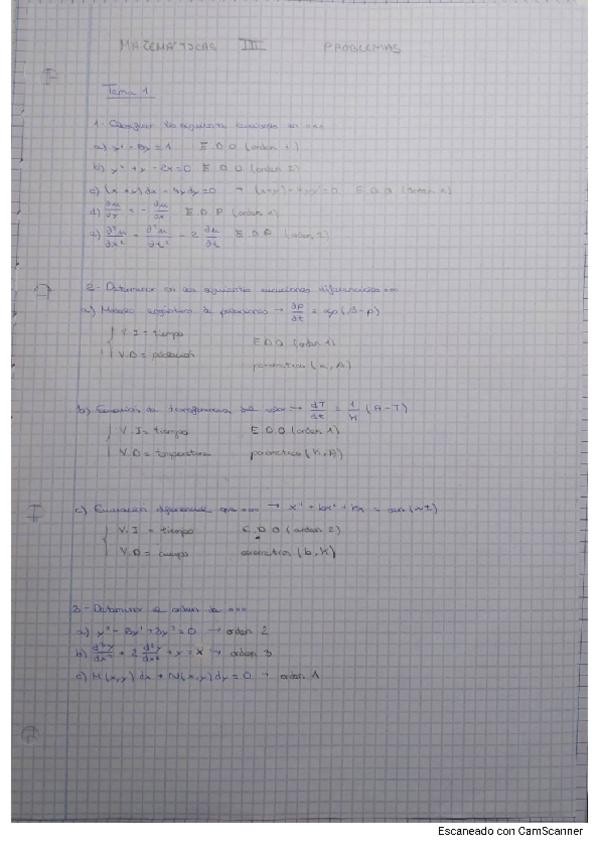 MATEMÁTICAS III PROBLEMAS
Tema 1
1- Clasificar las siguientes ecuaciones en ...
a) y' - 8y = 1 E.D.O (orden 1)
b) y'' + y - 2x = 0 E.D.O (orden 2)
c) (x + y) dx - 4y dy = 0 → (x+y) - 4yy' = 0 E.D.O (orden 1)
d) ∂u/∂y = - ∂u/∂x E.D.P (orden 1)
e) ∂²u/∂x² = ∂²u/∂t² - 2 ∂u/∂t E.D.P (orden 2)
2- Determinar en las siguientes ecuaciones diferenciales ...
a) Modelo logístico de poblaciones → dp/dt = αp(β-p)
V.I = tiempo E.D.O (orden 1)
V.D = población parámetros
b) Ecuación de transferencia del calor → dT/dt = 1/K (A-T)
V.I = tiempo E.D.O (orden 1)
V.D = temperatura parámetros (K, A)
c) Ecuación diferencial que ... → x'' + bx' + kx =
V.I = tiempo E.D.O (orden 2)
V.D = cuerpo parámetros (b, K)
3- Determinar el orden de ...
a) → orden 2
b) → orden 3
c) M(x,y) dx + N(x,y) dy = 0 → orden 1
Escaneado con CamScanner